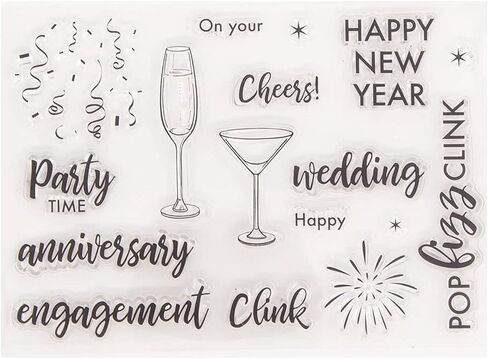 On your
HAPPY
NEW
YEAR
Cheers!
Party
TIME
wedding
Happy
anniversary
engagement
Clink
POP fizz CLINK